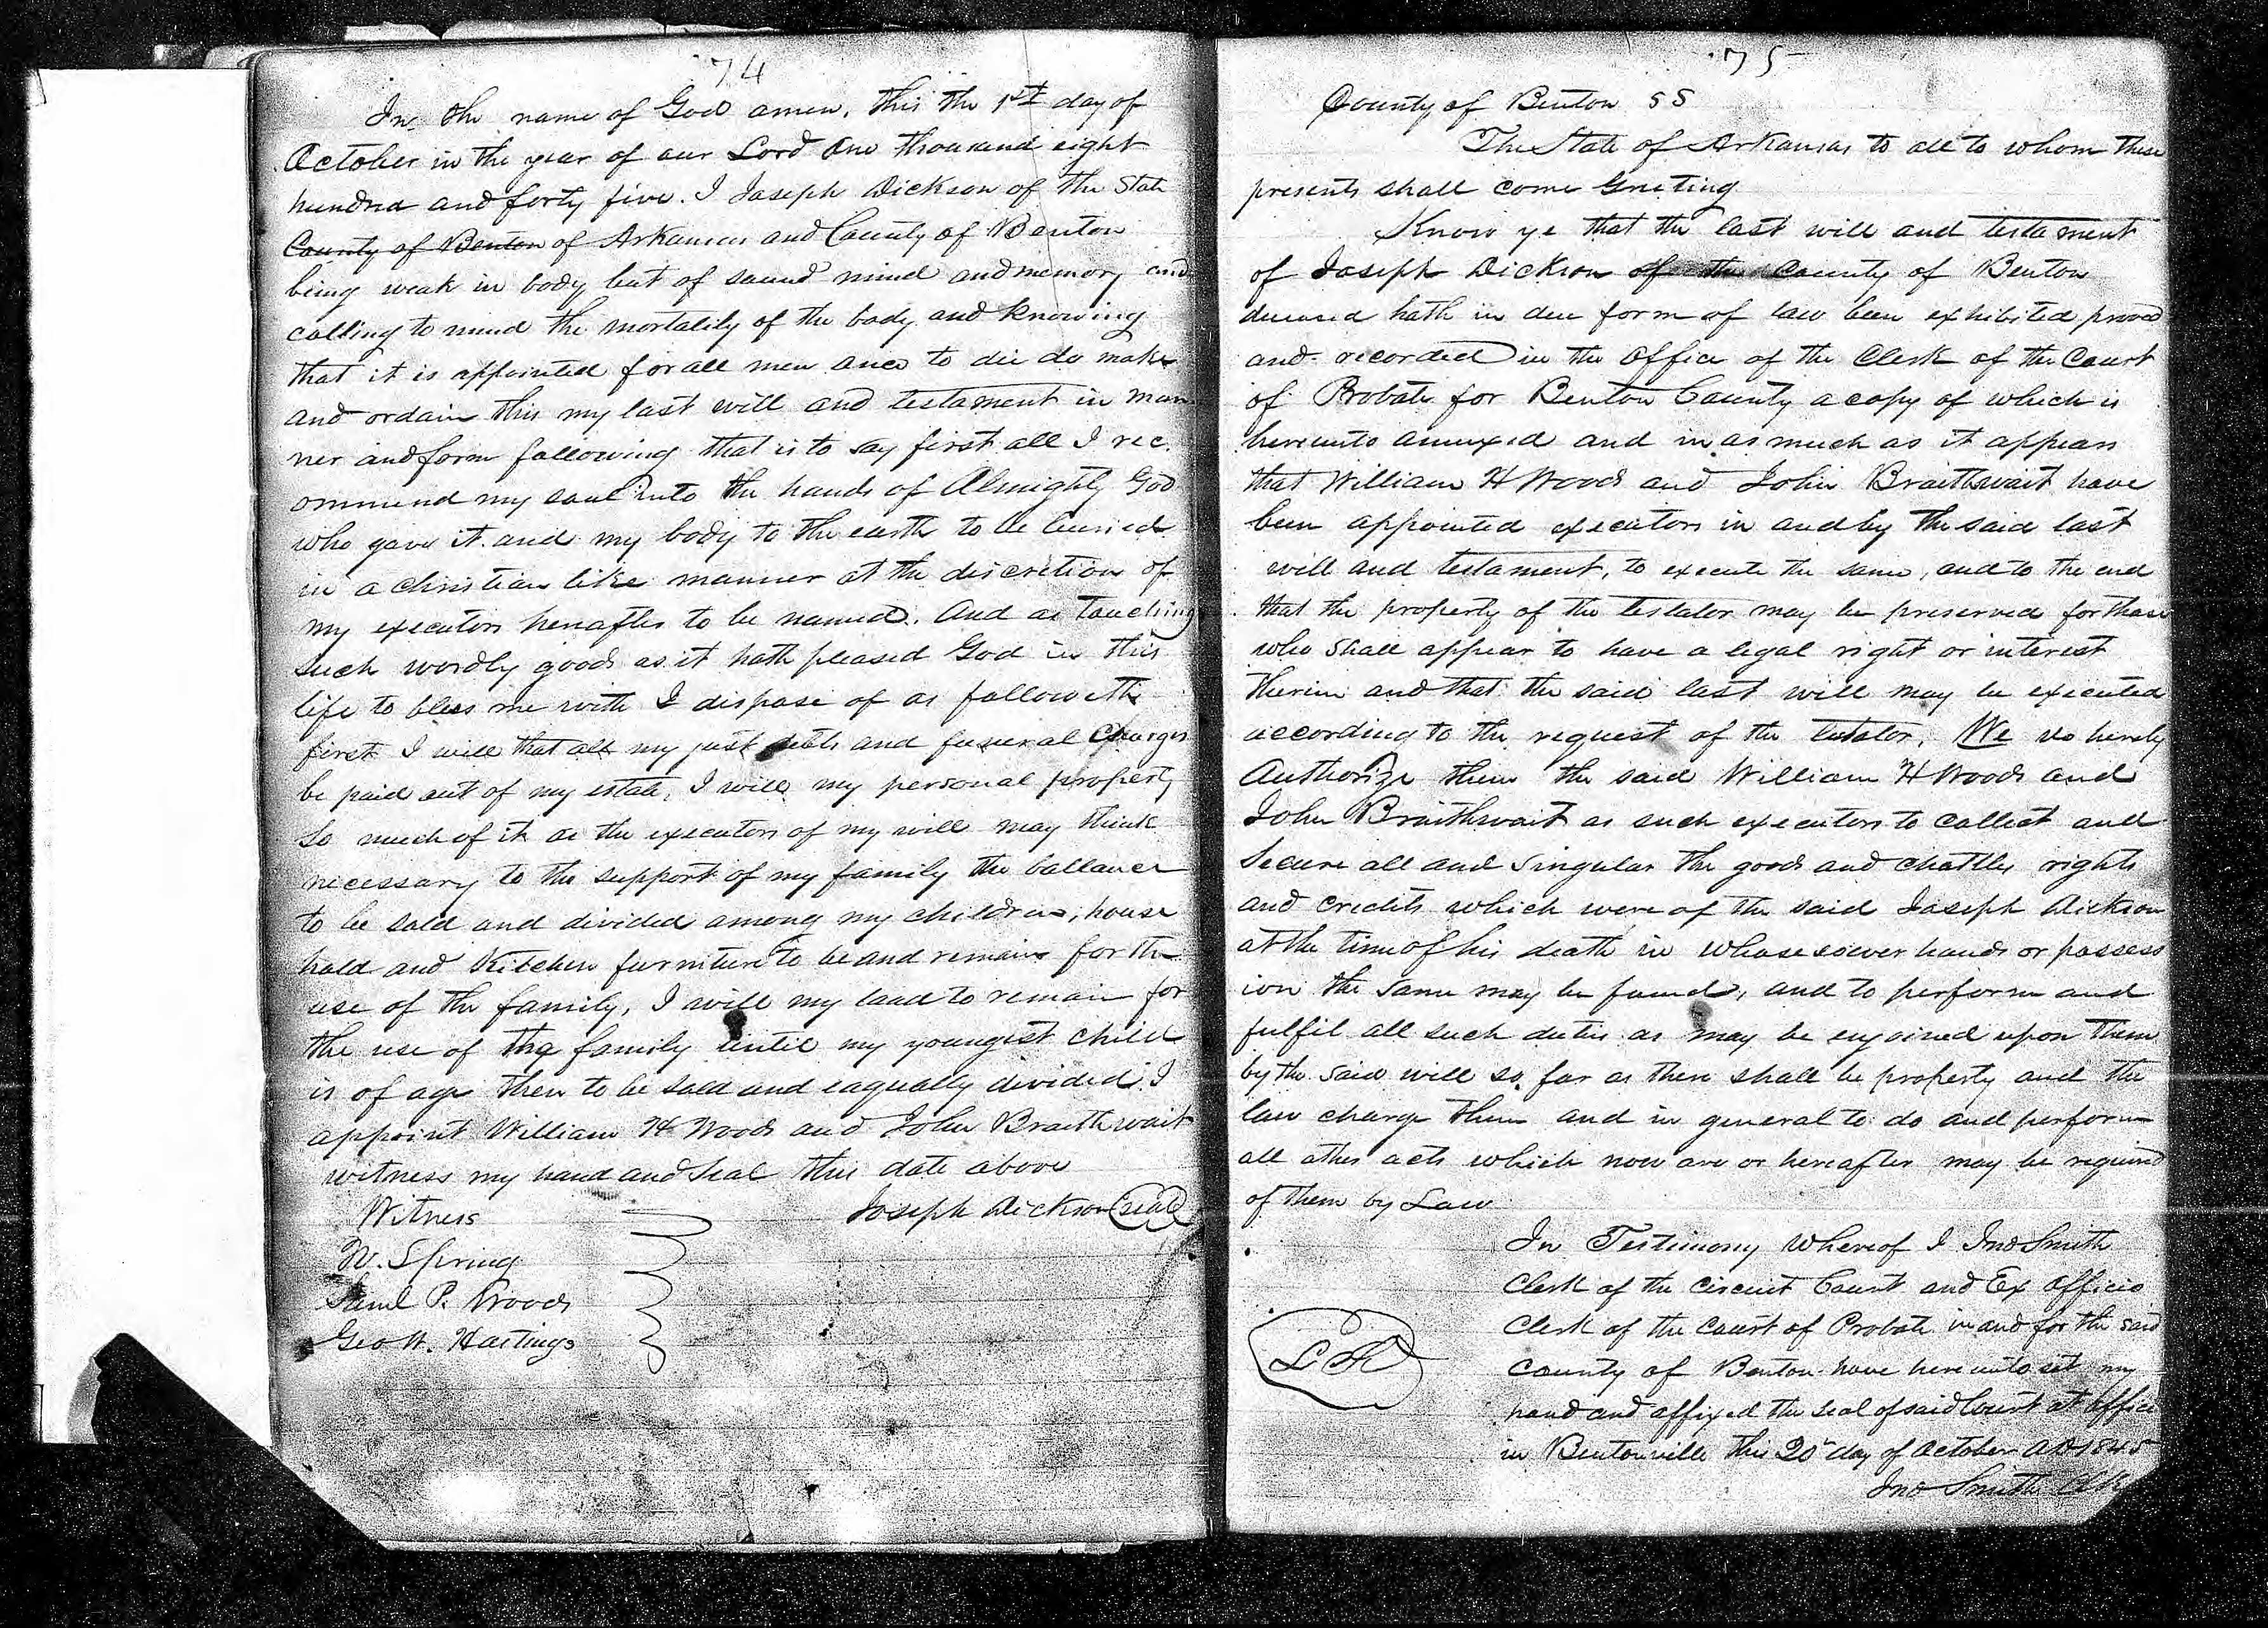 74
In the name of God amen, this the 1st day of
October in the year of our Lord One thousand eight
hundred and forty five. I Joseph Dickson of the State
County of Benton of Arkansas and County of Benton
being weak in body but of sound mind and memory and
calling to mind the mortality of the body and knowing
that it is appointed for all men once to die do make
and ordain this my last will and testament in man
ner and form following that is to say first all I rec
ommend my soul into the hands of Almighty God
who gave it and my body to the earth to be buried
in a christian like manner at the discretion of
my executors hereafter to be named. And as touching
such wordly goods as it hath pleased God in this
life to bless me with I dispose of as followeth
first I will that all my just debts and funeral charges
be paid out of my estate, I will my personal property
so much of it as the executors of my will may think
necessary to the support of my family the ballance
to be sold and divided among my children, house
hold and Kitchen furniture to be and remain for the
use of the family, I will my land to remain for
the use of the family until my youngest child
is of age then to be sold and eaqually divided. I
appoint William H Woods and John Braithwait
witness my hand and seal this date above
Joseph Dickson (seal)
Witness
W. Spring
Saml P. Woods
Geo W. Hastings
75
County of Benton SS
The State of Arkansas to all to whom these
presents shall come Greeting
Know ye that the last will and testament
of Joseph Dickson of the County of Benton
deceased hath in due form of law been exhibited proved
and recorded in the Office of the Clerk of the Court
of Probate for Benton County a copy of which is
hereunto annexed and in as much as it appears
that William H Woods and John Braithwait have
been appointed executors in and by the said last
will and testament, to execute the same, and to the end
that the property of the testator may be preserved for those
who shall appear to have a legal right or interest
therein and that the said last will may be executed
according to the request of the testator, We do hereby
Authorize them the said William H Woods and
John Braithwait as such executors to collect and
secure all and singular the goods and chattles rights
and credits which were of the said Joseph Dickson
at the time of his death in whose soever hands or possess
ion the same may be found, and to perform and
fulfil all such duties as may be enjoined upon them
by the said will so far as there shall be property and the
law charge them and in general to do and perform
all other acts which now are or hereafter may be required
of them by Law
In Testimony Whereof I Jno Smith
Clerk of the Circuit Court and Ex Officio
Clerk of the Court of Probate in and for the said
County of Benton have here unto set my
hand and affixed the seal of said Court at office
in Bentonville this 20 day of October AD 1845
Jno Smith Clk